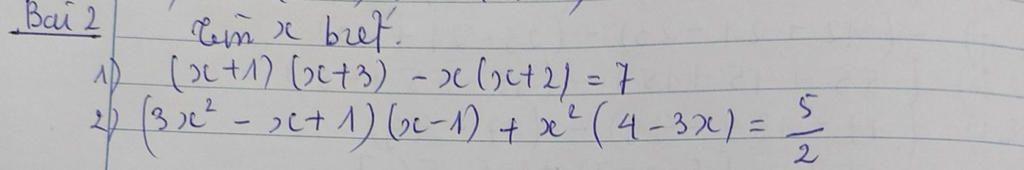 Bài 2
Tìm x biết.
1) (x+1)(x+3) - x(x+2) = 7
2) (3x² - x + 1)(x-1) + x²(4 - 3x) = 5/2